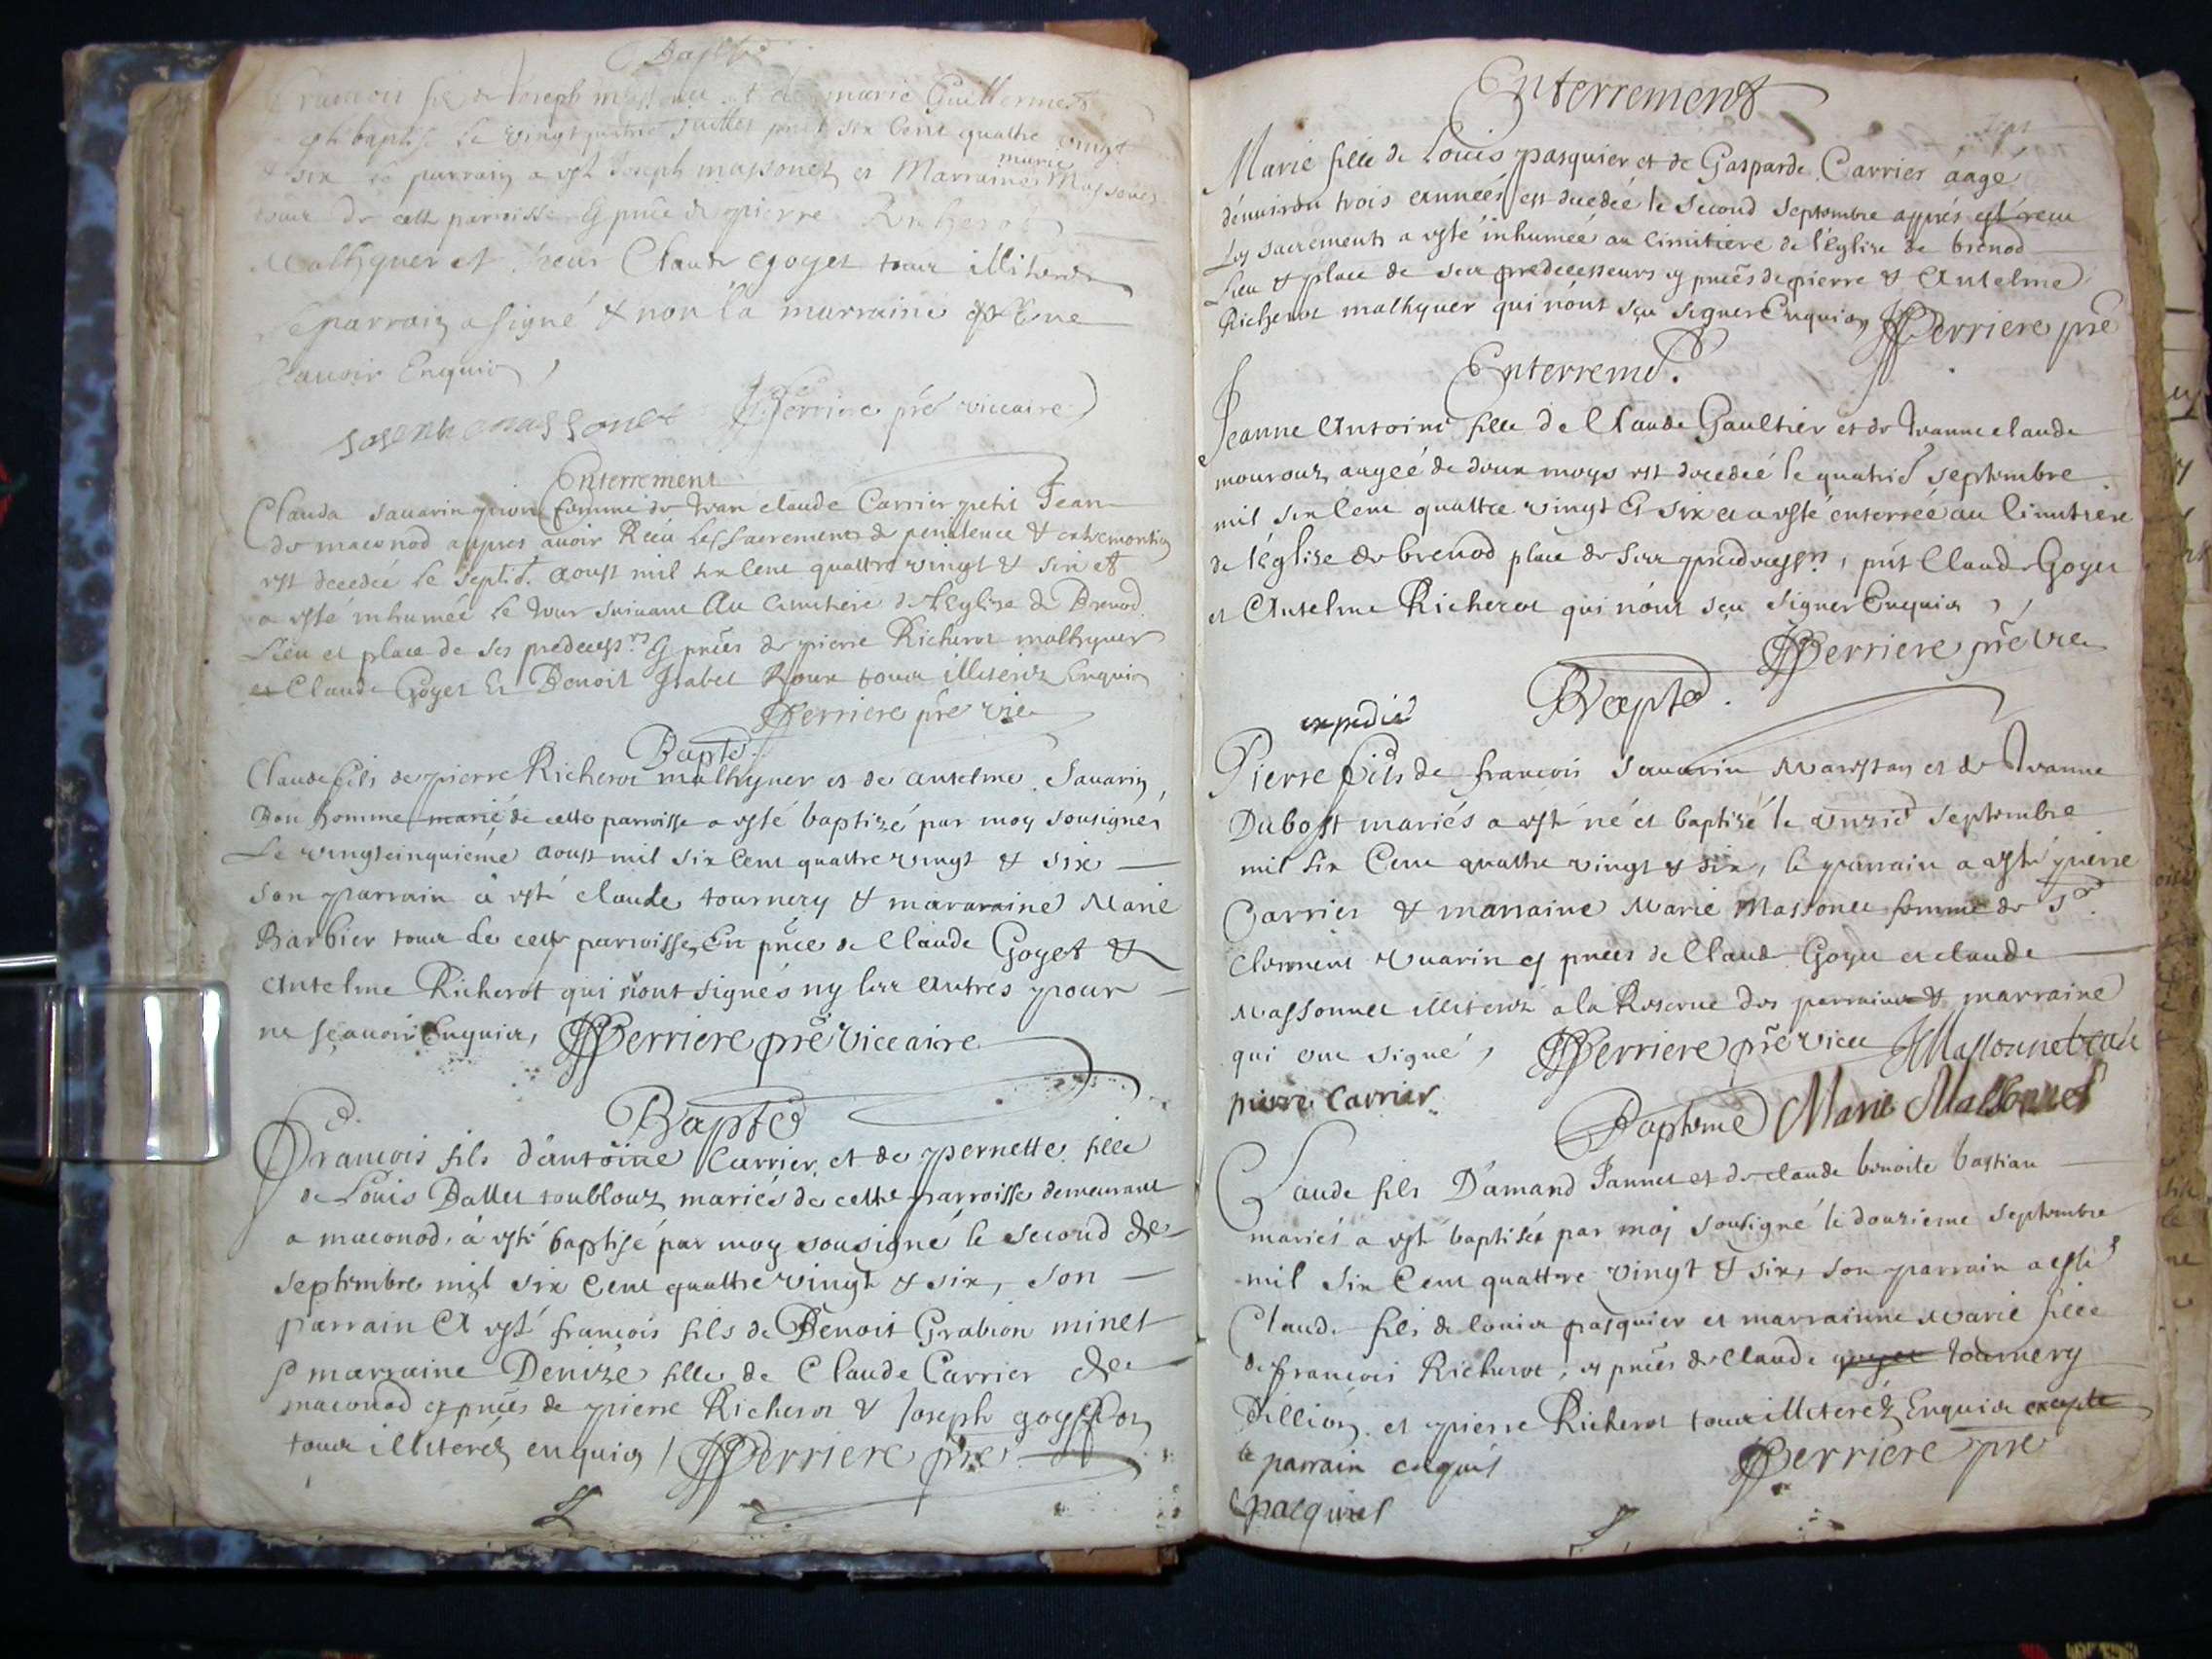 Bapte
francois fils de Joseph massonet et de marie Guillermet
est baptisé le vingt quatrie Juillet six Cent quattre vingt
& six le parrain a esté Joseph massonet et Marraine marie Massonet
tous de cette parroisse pierre Richerot
Malhyuer et Claude Goyet tous illiterez
le parrain a signé & non la marraine
scauoir Enquis
Joseph massonet JPerriere pre viccaire
Enterrement
Clauda sauarin femme de Jean claude Carrier petit Jean
de maconod apprés auoir Receu les Sacrements de penitence & extremontion
est decedée le septie. aoust mil six Cent quattre vingt & six et
a esté inhumée le Jour suiuant Au cimitiere de l'Eglize de Brenod
Lieu et place de ses predecessrs pnces de pierre Richerot malhyuer
et Claude Goyet Et Benoit Isabel Roux tous illiterez Enquis
JPerriere pre vic
Bapte
Claude fils de pierre Richerot malhyuer et de anselme Sauarin
Bon homme marié de cette parroisse a esté baptizé par moy sousigné
Le vingtcinquieme aoust mil six Cent quattre vingt & six
son parrain à esté claude tournery & mararaine Marie
Barbier tous de cette parroisse En pnce de Claude Goyet &
Antelme Richerot qui n'ont signés ny les autres pour
ne sçauoir Enquis, JPerriere pre Viccaire
Bapte
francois fils d'antoine Carrier et de pernette fille
de Louis Ballet toublouz mariés de cette parroisse demeurant
a maconod, à esté baptisé par moy sousigné le second de
septembre mil six Cent quattre vingt & six, son
parrain A esté francois fils de Benoit Grabion minet
& marraine Denize fille de Claude Carrier de
maconod pnces de pierre Richerot & Joseph goyffon
tous illiterez enquis JPerriere pre
Enterrement
Marie fille de Louis pasquier et de Gasparde Carrier áagé
d'enuiron trois années est decedée le second septembre apprés
Les sacrements a esté inhumée au cimitiere de l'Eglize de brenod
Lieu & place de ses predecesseurs pnces de pierre & Antelme
Richerot malhyuer qui n'ont sçu signer Enquis JPerriere pre
Enterremt.
Jeanne Antoine fille de Claude Gaultier et de Jeanne claude
mourouz aagée de deux moys est decedée le quatrie septembre
mil six Cent quattre vingt Et six et a esté enterrée au Cimitiere
de l'église de brenod place de ses predecess.rs, pnt Claude Goyet
et Antelme Richerot qui n'ont sçu signer Enquis
JPerriere pre vic
Bapte.
expedié
Pierre fils de francois sauarin Marestan et de Jeanne
Dubost mariés a esté né et baptizé le unzie septembre
mil six Cent quattre vingt & six, le parrain a esté pierre
Carrier & marraine Marie Massonet femme de Sr.
Clement Vuarin pnces de Claude Goyet et claude
Massonnet illiterez a la Reserue des parrain & marraine
qui ont signé, JPerriere pre vicc Massonnet
pierre Carrier
Baptême Marie Massonnet
Claude fils D'amand Jannet et de claude benoite bastian
mariés a esté baptisé par moy sousigné le douzieme septembre
mil six Cent quattre vingt & six, son parrain a esté
Claude fils de louis pasquier et marrainne Marie fille
de francois Richerot, pnces de Claude goyet tournery
Billion et pierre Richerot tous illiteréz Enquis excepte
le parrain enquis JPerriere pre
Cpacquiet